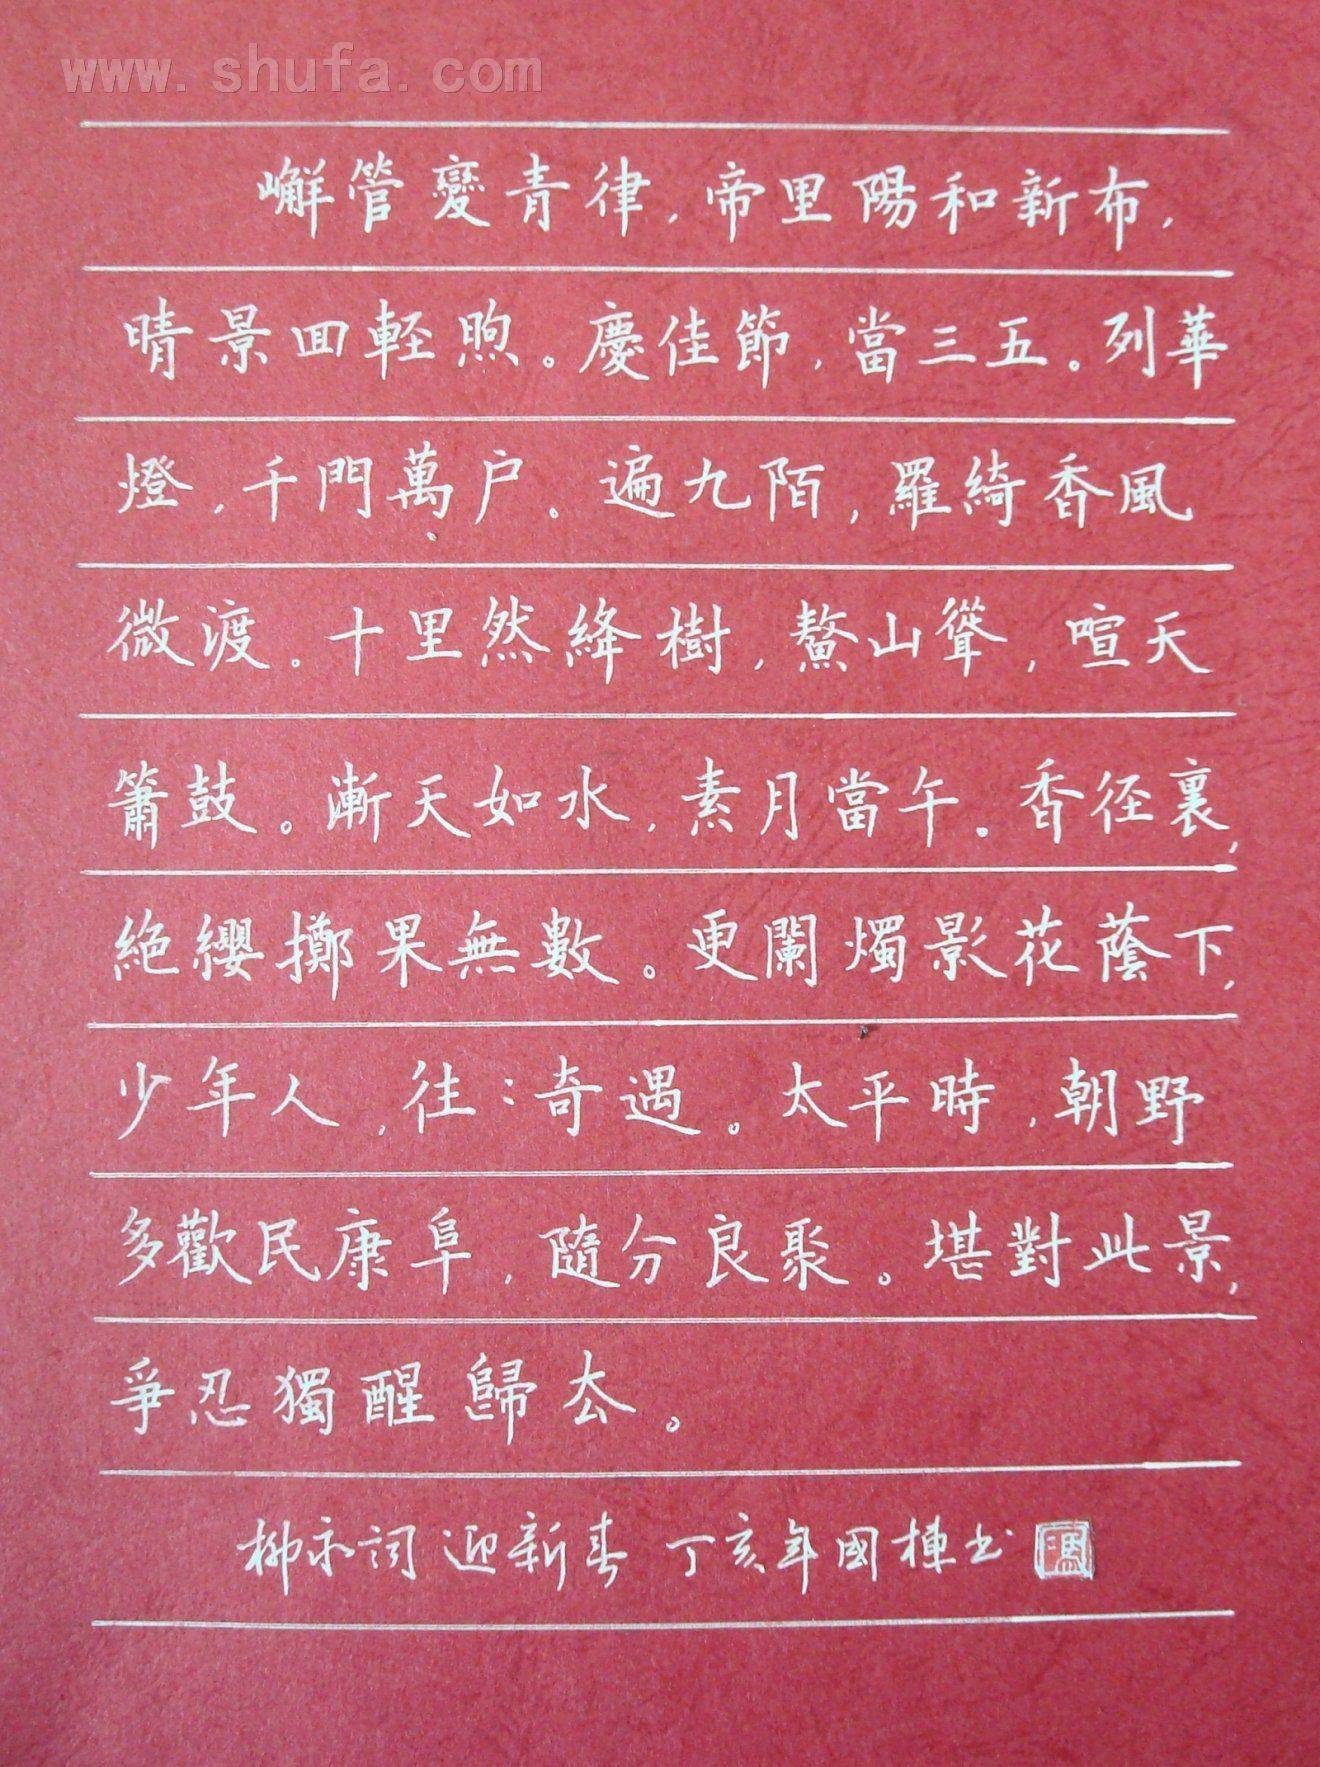 www.shufa.com
嶰管變青律，帝里陽和新布，
晴景回輕煦。慶佳節，當三五。列華
燈，千門萬户。遍九陌，羅綺香風
微渡。十里然絳樹，鰲山聳，喧天
簫鼓。漸天如水，素月當午。香徑裏，
絶纓擲果無數。更闌燭影花蔭下，
少年人，往：奇遇。太平時，朝野
多歡民康阜，隨分良聚。堪對此景，
爭忍獨醒歸去。
柳永詞 迎新春 丁亥年國棟书